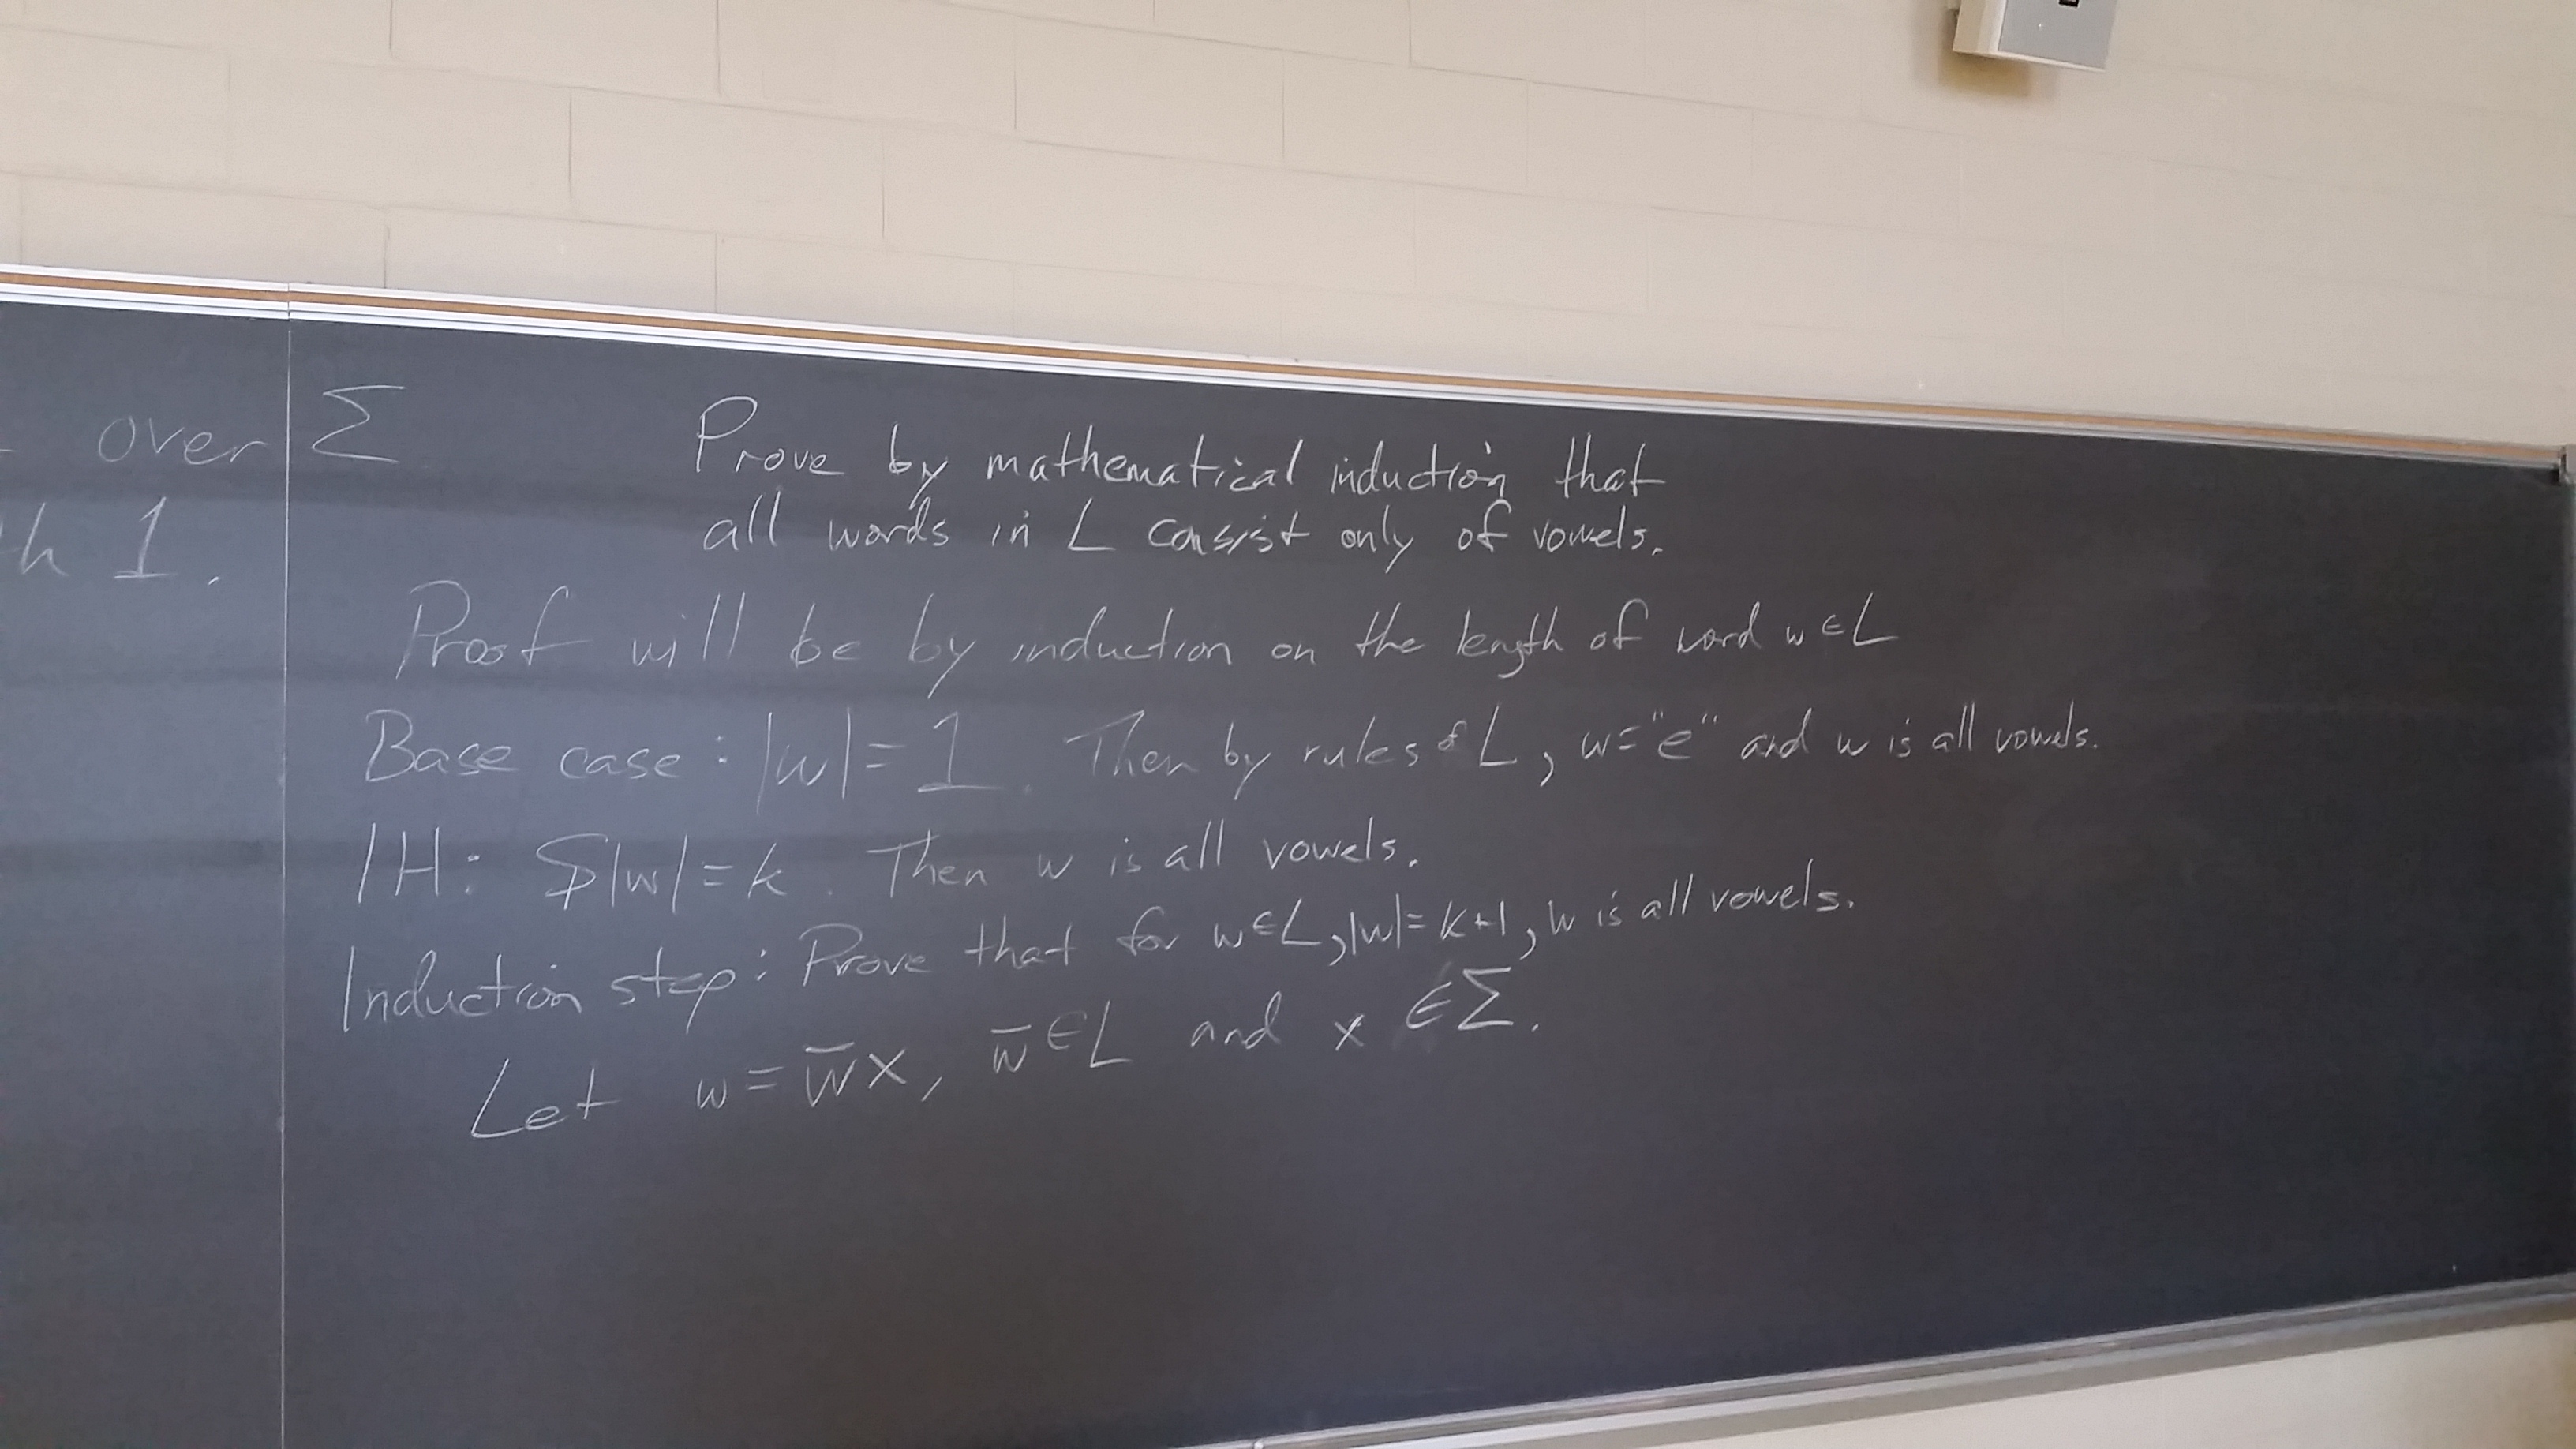 over Σ
h 1.
Prove by mathematical induction that
all words in L consist only of vowels.
Proof will be by induction on the length of word w ∈ L
Base case: |w| = 1. Then by rules of L, w = "e" and w is all vowels.
IH: $|w| = k. Then w is all vowels.
Induction step: Prove that for w ∈ L, |w| = k+1, w is all vowels.
Let w = w̅x, w̅ ∈ L and x ∈ Σ.